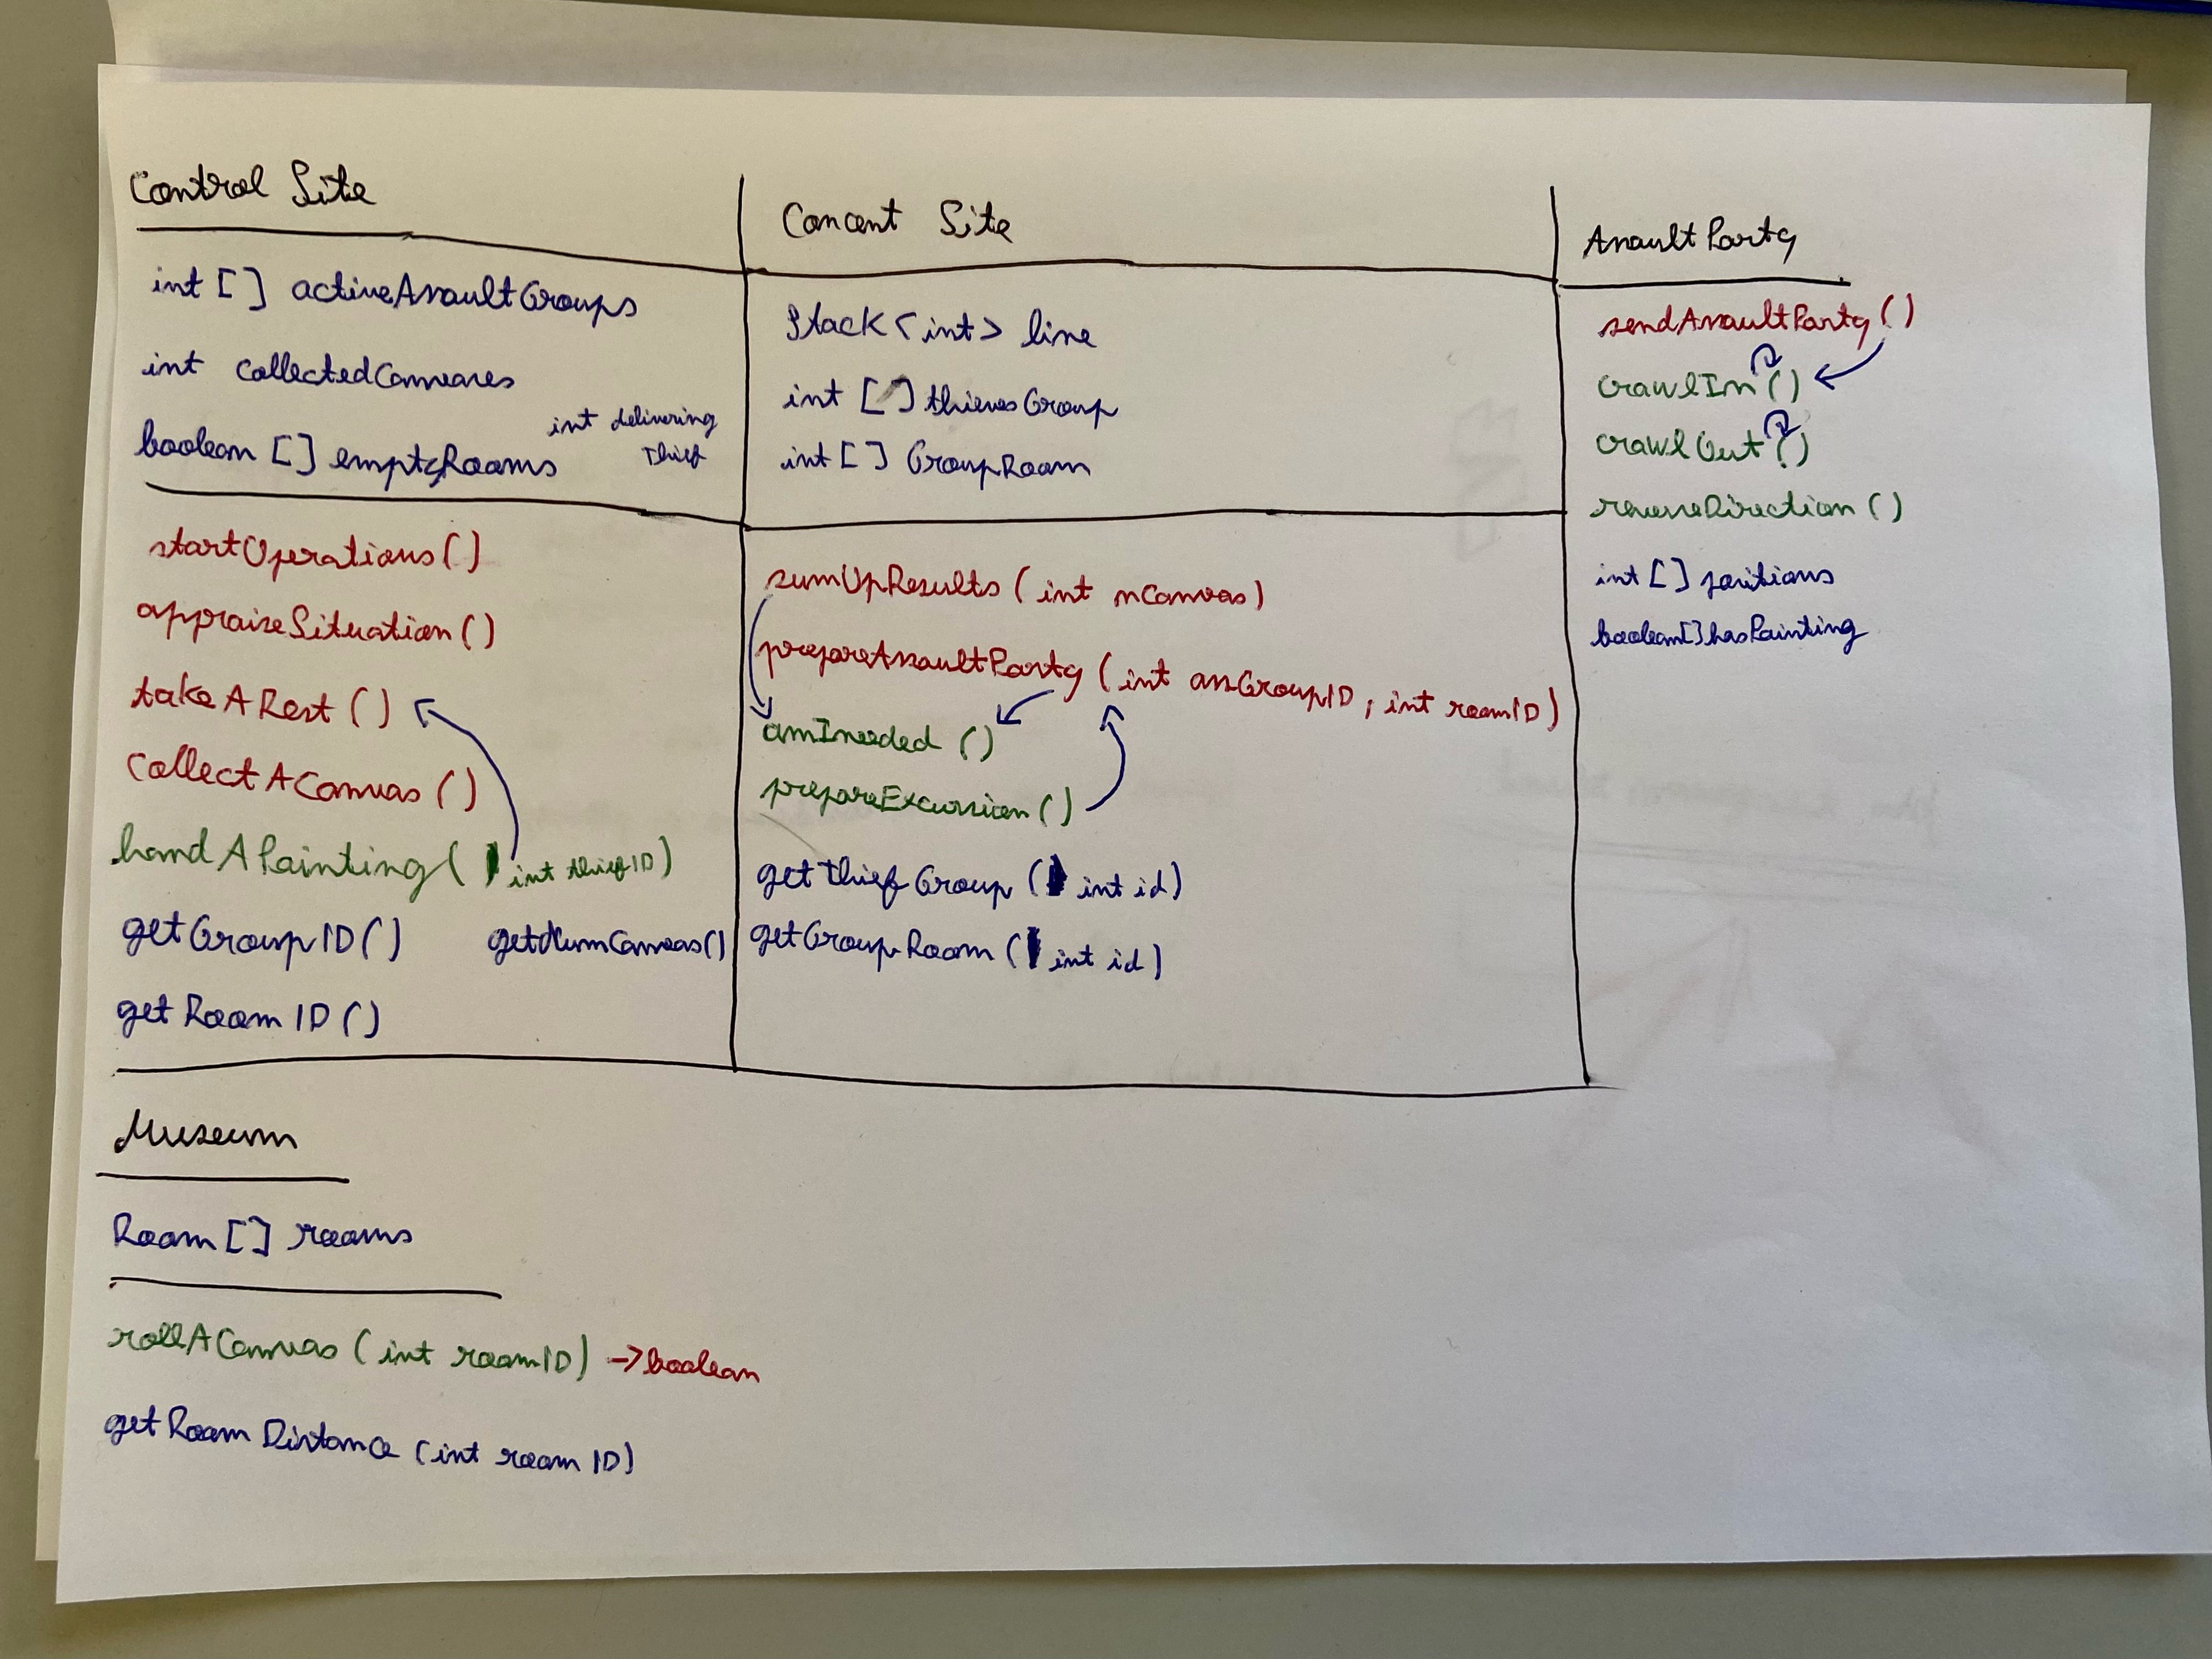 Control Site
int [ ] activeAssaultGroups
int collectedCanvases
int delivering
Thief
boolean [ ] emptyRooms
startOperations ( )
appraiseSituation ( )
take A Rest ( )
Collect A Canvas ( )
hand A Painting ( int thiefID )
getGroup ID ( ) getNumCanvas ( )
get Room ID ( )
Concent Site
Stack < int > line
int [ ] thievesGroup
int [ ] GroupRoom
sumUpResults ( int nCanvas )
prepareAssaultParty ( int assGroupID , int roomID )
amIneeded ( )
prepareExcursion ( )
get thief Group ( int id )
getGroup Room ( int id )
Assault Party
sendAssaultParty ( )
crawlIn ( )
crawlOut ( )
reverseDirection ( )
int [ ] positions
boolean [ ] hasPainting
Museum
Room [ ] rooms
rollACanvas ( int roomID ) → boolean
get Room Distance ( int room ID )